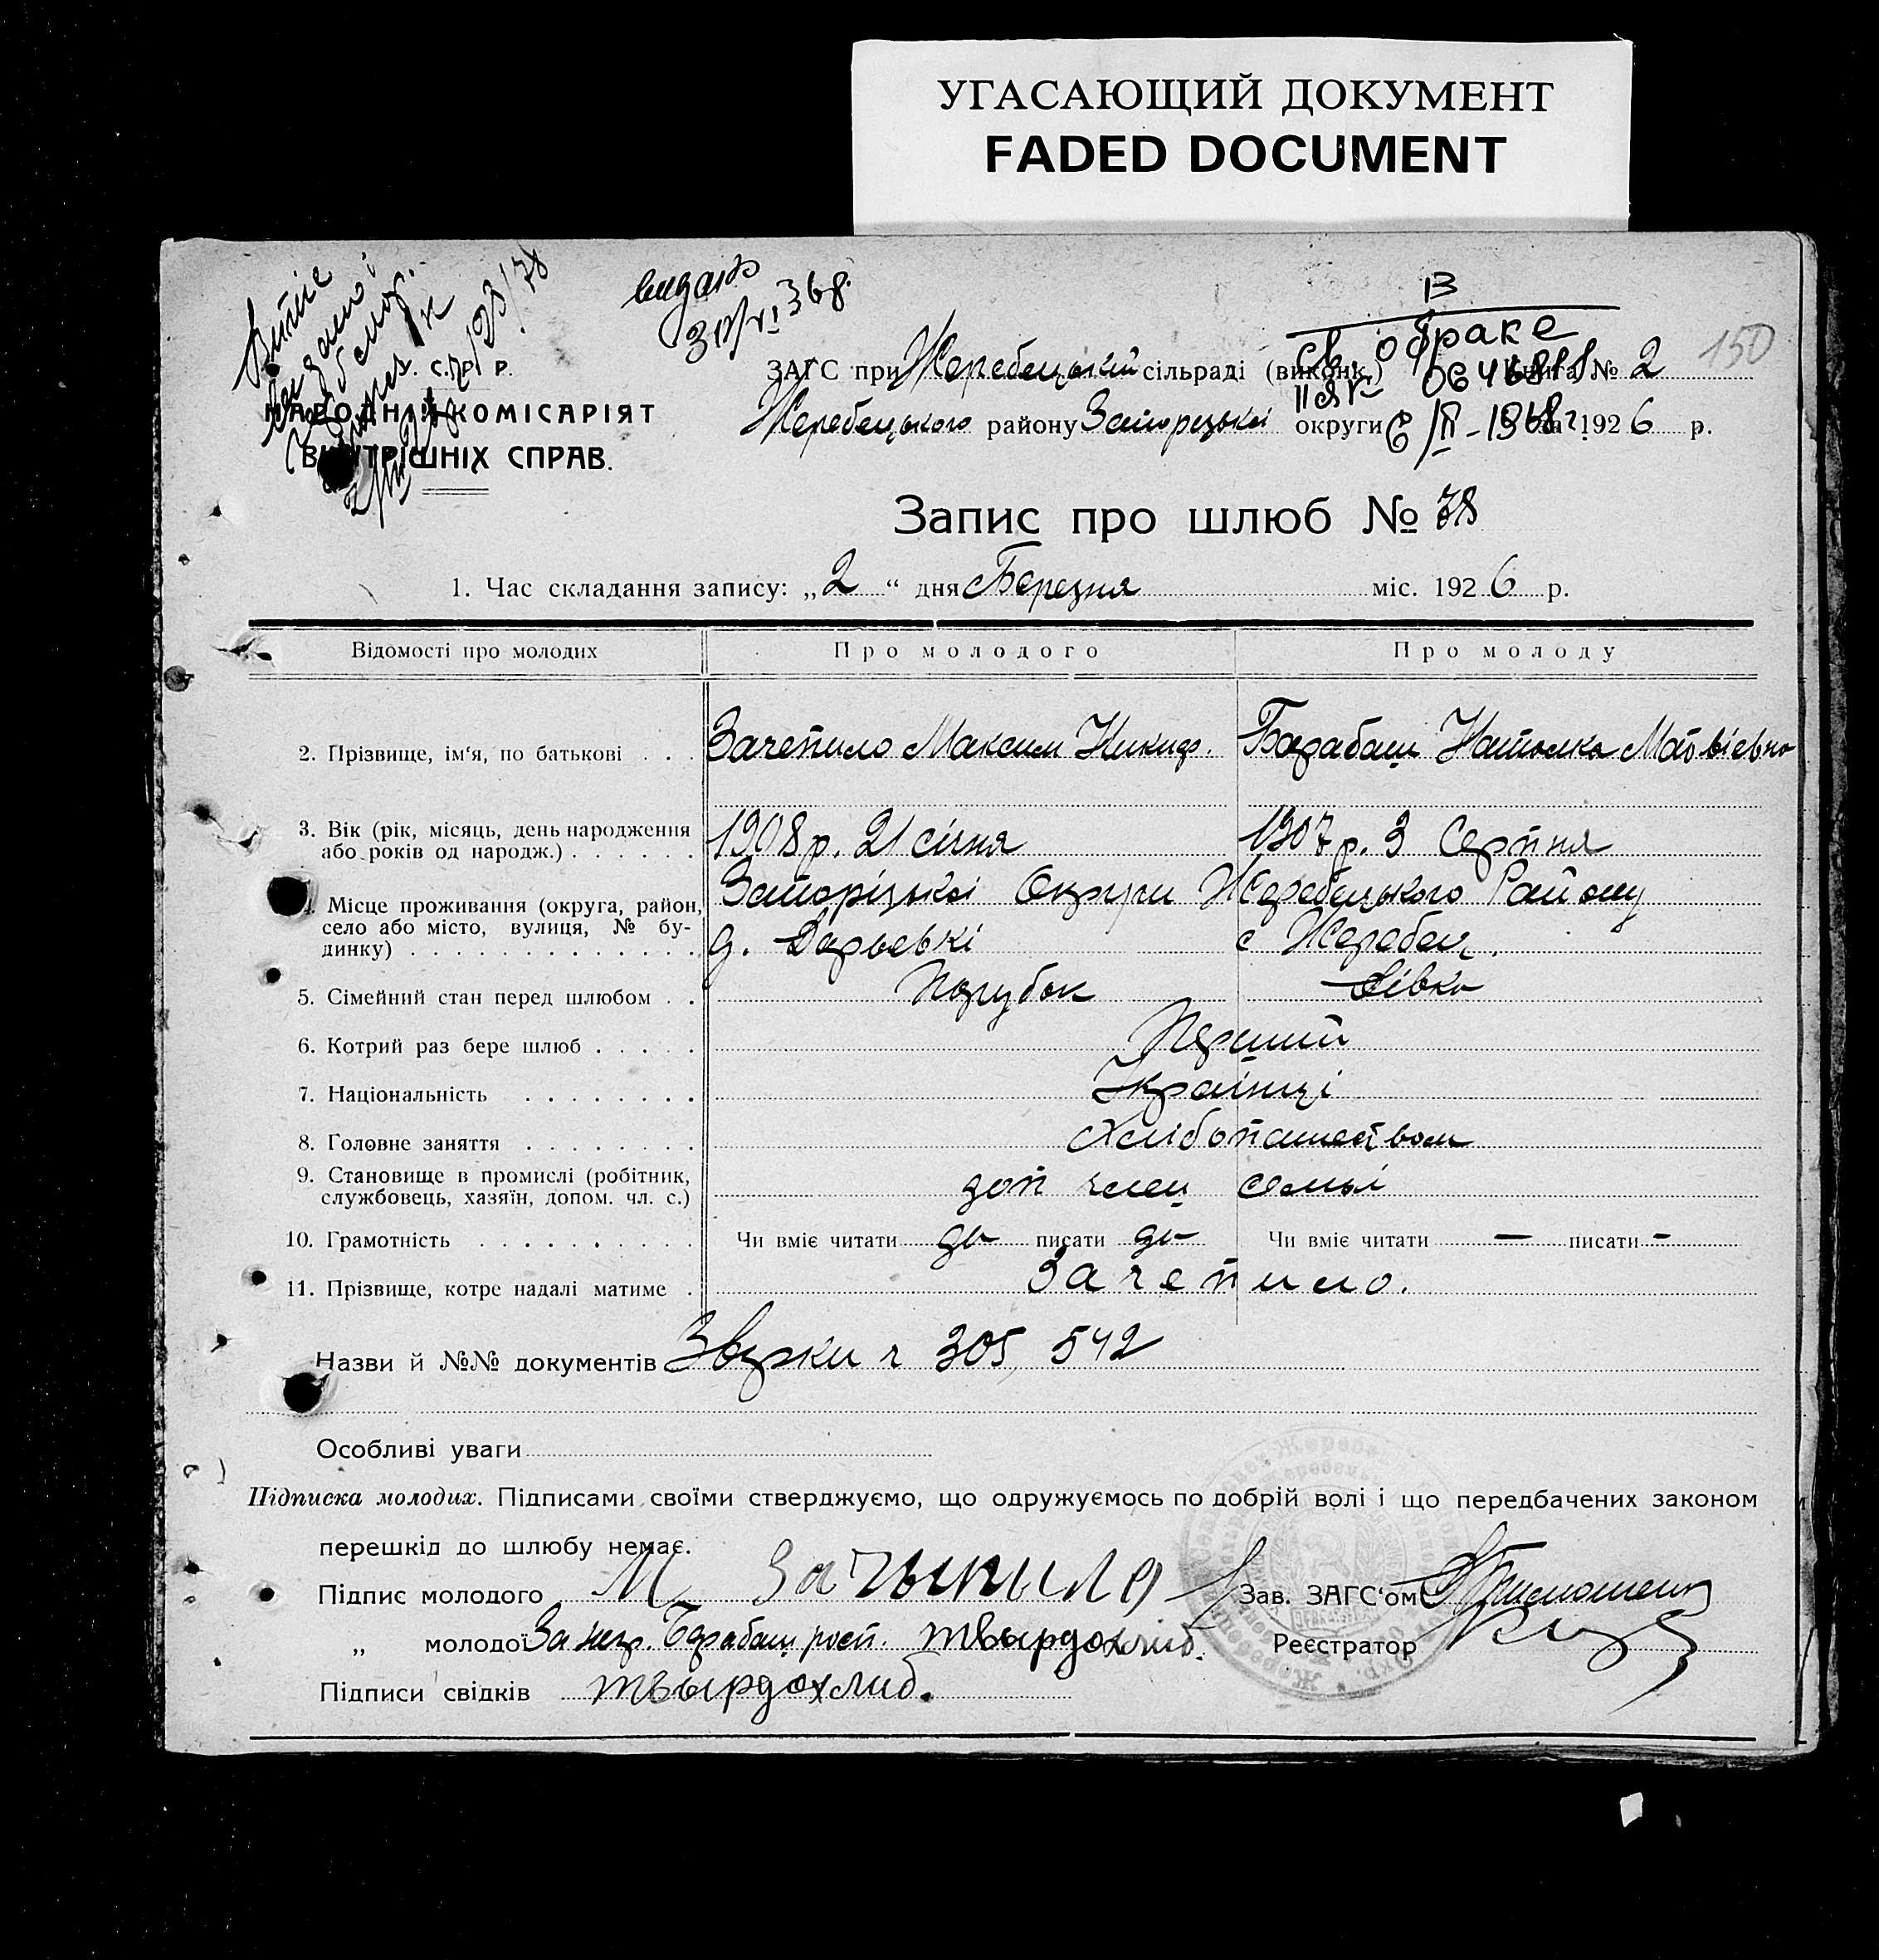 УГАСАЮЩИЙ ДОКУМЕНТ
FADED DOCUMENT
видано
В
св. о браке
150
. С. Р. Р.
НАРОДНІЙ КОМІСАРІЯТ
ВНУТРІШНІХ СПРАВ.
ЗАГС при Жеребецькій сільраді (виконк.) Книга № 2
Жеребецького району Запорізької округи на 1926 р.
Запис про шлюб № 78
1. Час складання запису: „2“ дня Березня міс. 1926 р.
Відомості про молодих Про молодого Про молоду
2. Прізвище, ім'я, по батькові . . . Зачепило Максим Никиф. Барабаш Наталка Матвієвна
3. Вік (рік, місяць, день народження 1908 р. 21 січня 1907 р. 3 Серпня
або років од народж.) . . . . . .
4. Місце проживання (округа, район, Запорізької Округи Жеребецького Району
село або місто, вулиця, № бу-
динку) . . . . . . . . . . . . . д. Дарьевкі с Жеребец.
5. Сімейний стан перед шлюбом . . Парубок Дівка
6. Котрий раз бере шлюб . . . . . Перший
7. Національність . . . . . . . . Українці
8. Головне заняття . . . . . . . . Хлібопашеством
9. Становище в промислі (робітник,
службовець, хазяїн, допом. чл. с.) доп член семьї
10. Грамотність . . . . . . . . . . Чи вміє читати да писати да Чи вміє читати — писати -
11. Прізвище, котре надалі матиме . Зачепило.
Назви й №№ документів 305, 542
Особливі уваги
Підписка молодих. Підписами своїми стверджуємо, що одружуємось по добрій волі і що передбачених законом
перешкід до шлюбу немає.
Підпис молодого М Зачыпыло Зав. ЗАГС'ом
„ молодої За негр. Барабаш росп. Твырдохлиб. Реєстратор
Підписи свідків твырдохлиб.